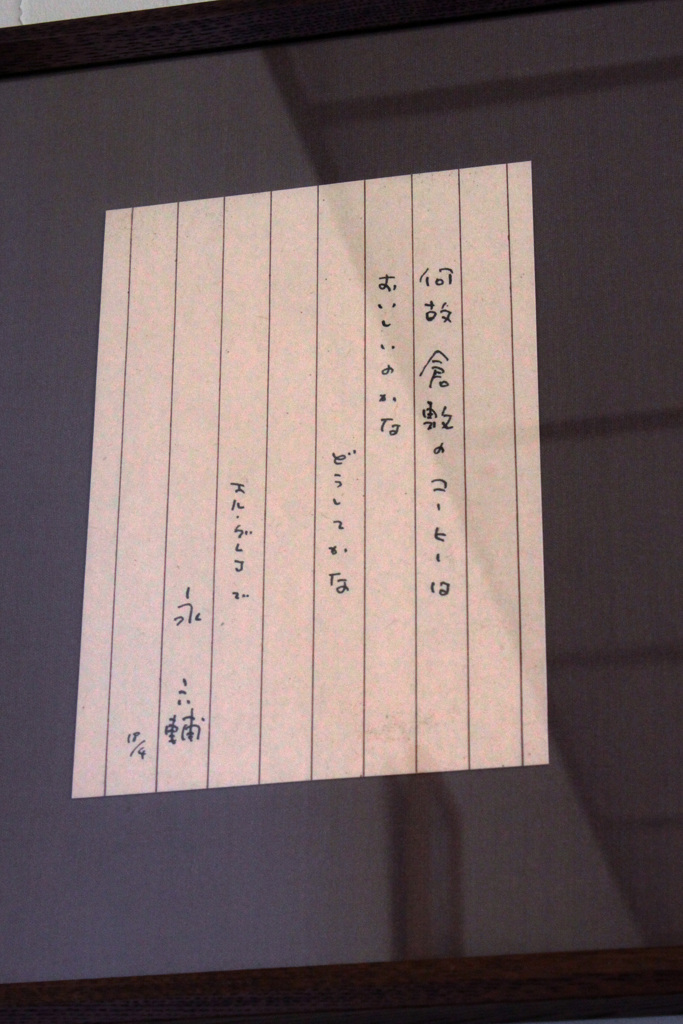 何故 倉敷のコーヒーは
おいしいのかな
どうしてかな
永 六輔
18/4